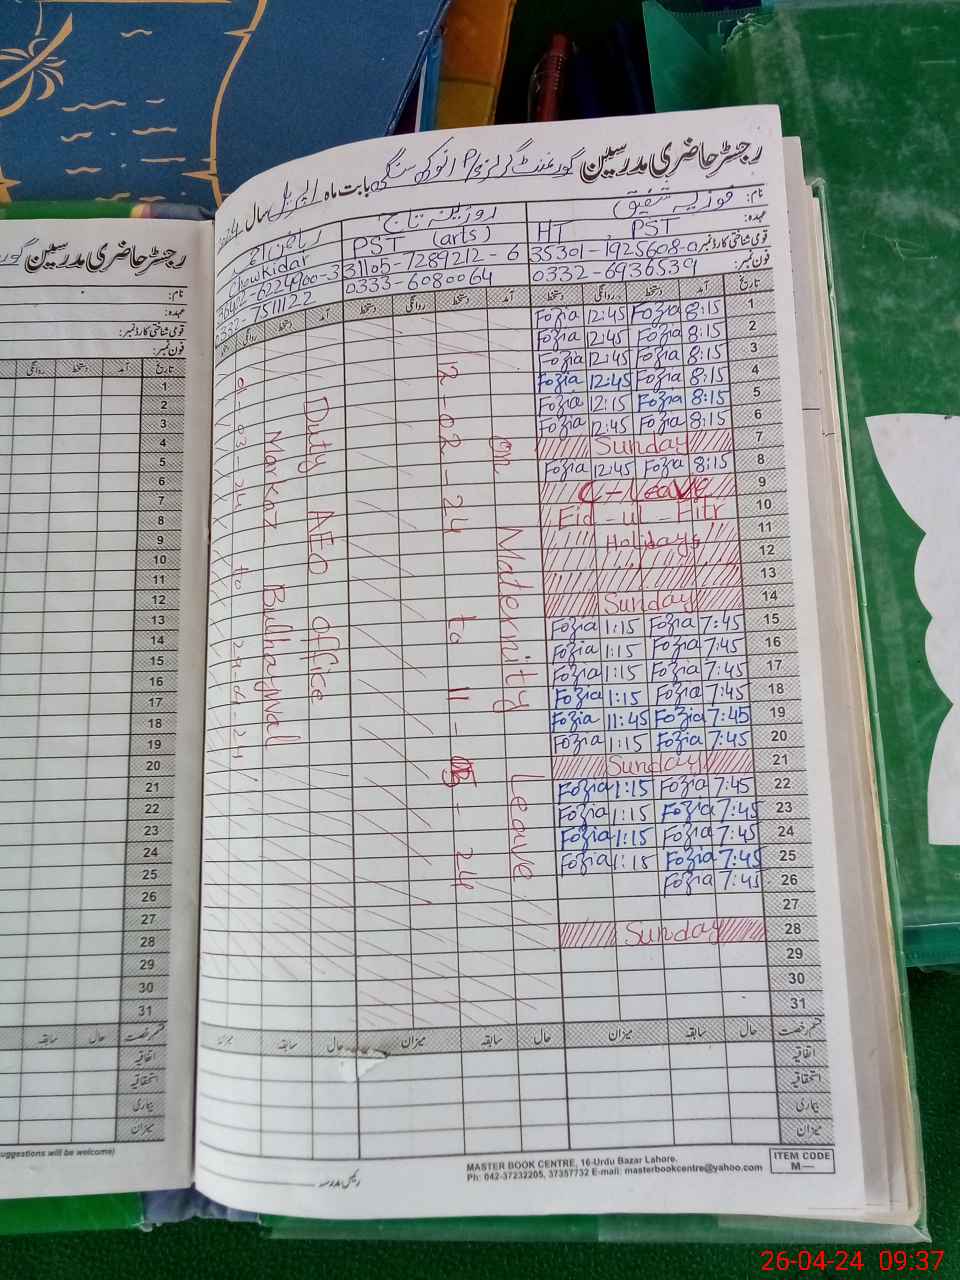 رجسٹر حاضری مدرسین گورنمنٹ گرلز P/S انوکھ سنگھ بابت ماہ اپریل سال 2024
نام: فوزیہ شفیق روزینہ تاج ریاض احمد
عہدہ: HT PST PST (arts) Chowkidar
قومی شناختی کارڈ نمبر: 35301-1925608-0 31105-7289212-6
فون نمبر: 0332-6936539 0333-6080064 0332-7511122
تاریخ آمد دستخط روانگی دستخط آمد دستخط روانگی دستخط آمد دستخط روانگی
1 8:15 Fozia 12:45 Fozia
2 8:15 Fozia 12:45 Fozia
3 8:15 Fozia 12:45 Fozia
4 8:15 Fozia 12:45 Fozia
5 8:15 Fozia 12:15 Fozia
6 8:15 Fozia 12:45 Fozia
7 Sunday
8 8:15 Fozia 12:45 Fozia
9 C-Leave
10 Eid-ul-Fitr
11 Holidays
12
13
14 Sunday
15 7:45 Fozia 1:15 Fozia
16 7:45 Fozia 1:15 Fozia
17 7:45 Fozia 1:15 Fozia
18 7:45 Fozia 1:15 Fozia
19 7:45 Fozia 11:45 Fozia
20 7:45 Fozia 1:15 Fozia
21 Sunday
22 7:45 Fozia 1:15 Fozia
23 7:45 Fozia 1:15 Fozia
24 7:45 Fozia 1:15 Fozia
25 7:45 Fozia 1:15 Fozia
26 7:45 Fozia
27
28 Sunday
29
30
31
On Maternity Leave
12-02-24 to 11-05-24
Duty AEO office
Markaz
قسم رخصت حال سابقہ میزان حال سابقہ میزان حال سابقہ میزان
اتفاقیہ
استحقاقیہ
بیماری
میزان
رئیس مدرسہ
MASTER BOOK CENTRE, 16-Urdu Bazar Lahore.
Ph: 042-37232205, 37357732 E-mail: masterbookcentre@yahoo.com
ITEM CODE
M—
رجسٹر حاضری مدرسین
نام:
عہدہ:
قومی شناختی کارڈ نمبر:
فون نمبر:
تاریخ آمد دستخط روانگی
1
2
3
4
5
6
7
8
9
10
11
12
13
14
15
16
17
18
19
20
21
22
23
24
25
26
27
28
29
30
31
قسم رخصت حال سابقہ
اتفاقیہ
استحقاقیہ
بیماری
میزان
suggestions will be welcome)
26-04-24 09:37